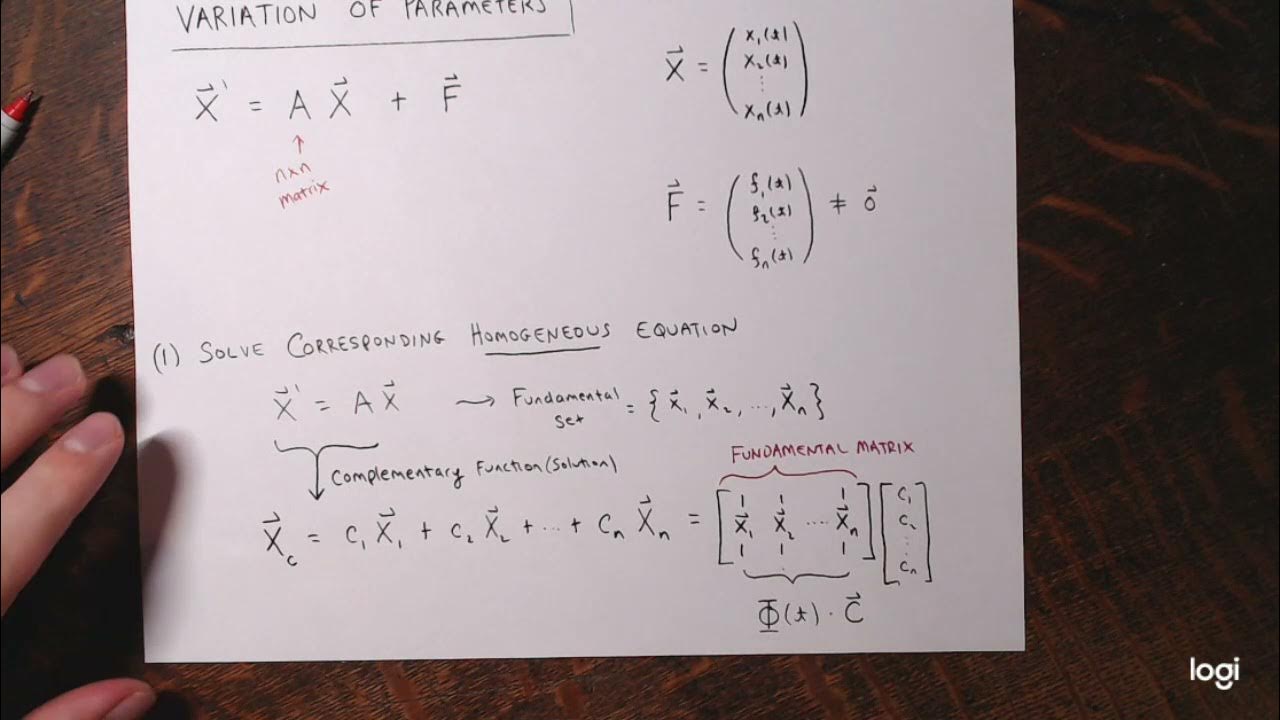 VARIATION OF PARAMETERS
X⃗' = A X⃗ + F⃗
↑
nxn
matrix
X⃗ = ( x₁(t)
x₂(t)
⋮
xₙ(t) )
F⃗ = ( f₁(t)
f₂(t)
⋮
fₙ(t) ) ≠ 0⃗
(1) SOLVE CORRESPONDING HOMOGENEOUS EQUATION
X⃗' = A X⃗ → Fundamental set = { X⃗₁, X⃗₂, ..., X⃗ₙ }
Complementary Function (Solution)
FUNDAMENTAL MATRIX
X⃗c = c₁ X⃗₁ + c₂ X⃗₂ + ... + cₙ X⃗ₙ = [ X⃗₁ X⃗₂ .... X⃗ₙ ] [ c₁
c₂
⋮
cₙ ]
Φ(t) · C⃗
logi